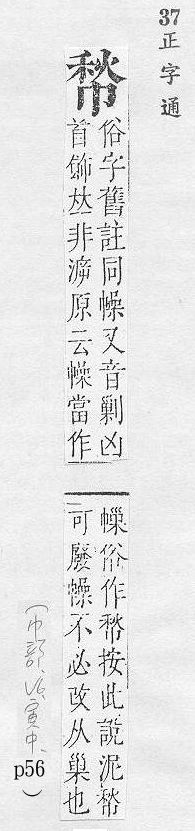 37正字通
俗字舊註同幧又音剿凶
首飾𠀤非泝原云幧當作
俗作按此說泥
可廢幧不必改从巢也
(巾部, 寅中, p56)